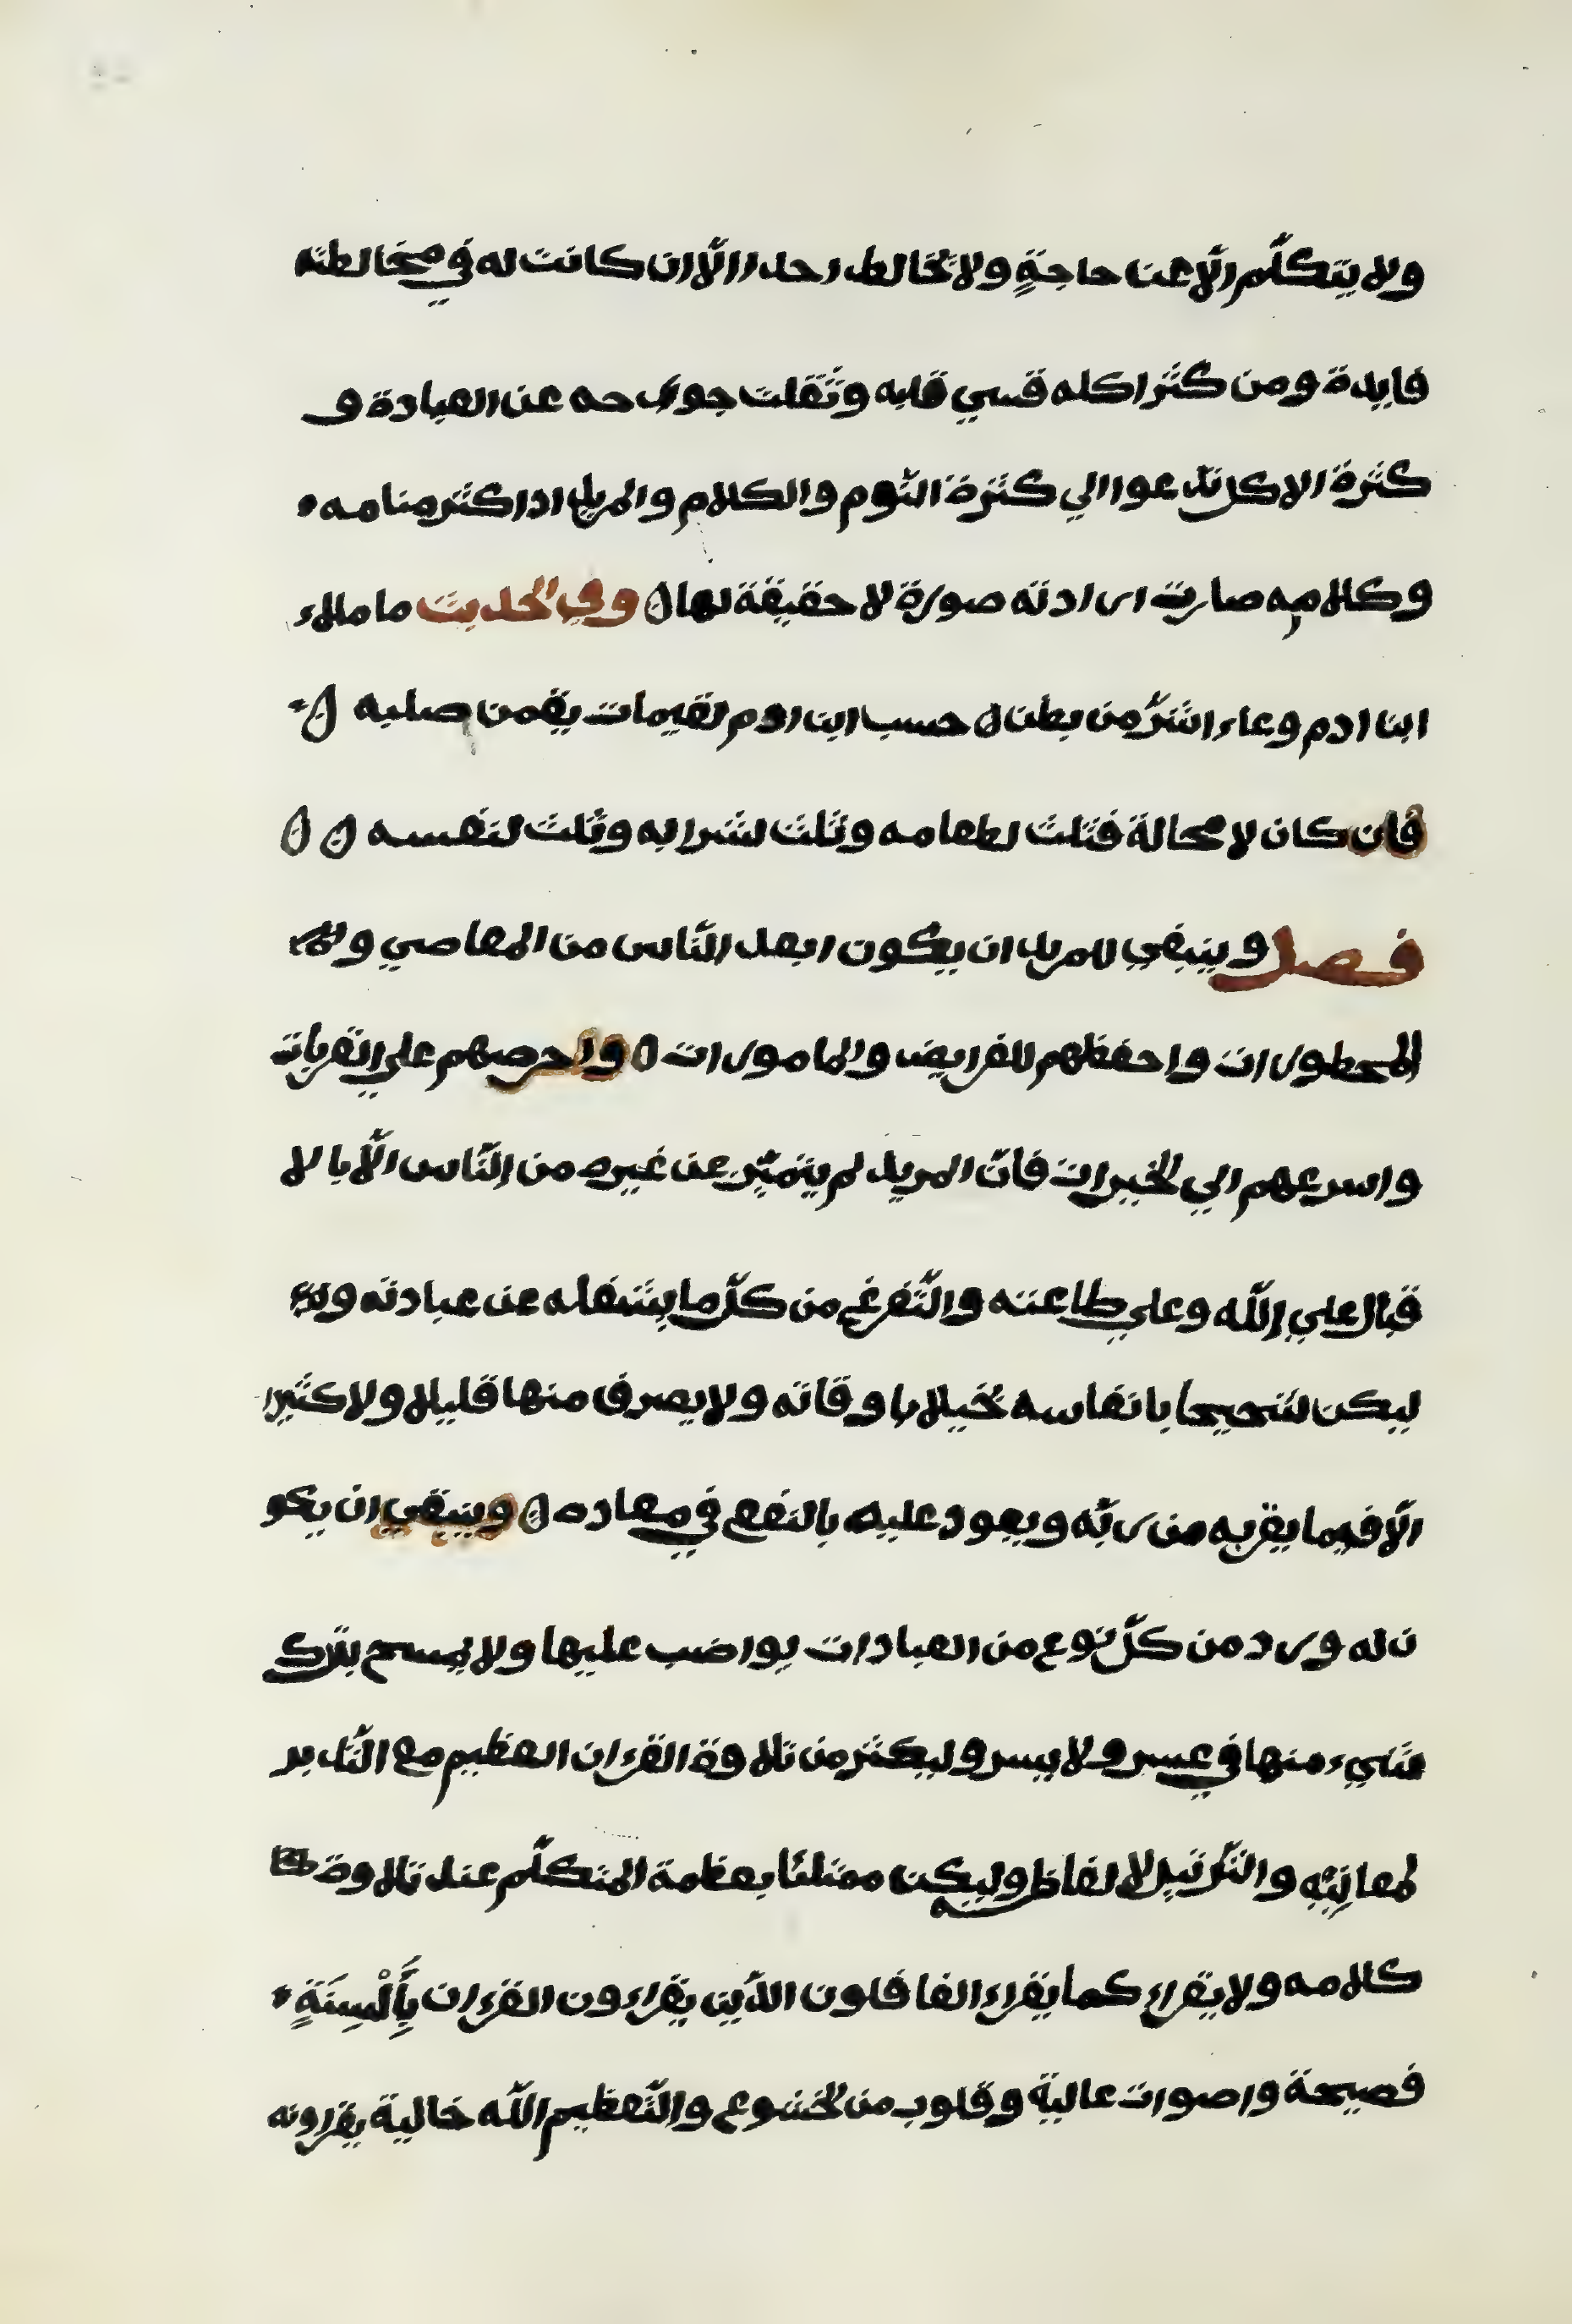 ولا يتكلّم الّا عن حاجةٍ ولا يخالط احدا الّا ان كانت له في مخالطته
فايدة ومن كثر اكله قسي قلبه وثقلت جوارحه عن العبادة و
كثرة الاكل تدعوا الي كثرة النّوم والكلام والمريد اذا كثر منامه
وكلامه صارت ارادته صورة لا حقيقة لها وفي الحديث ما ملاء
ابن ادم وعاء اشرّ من بطن حسب ابن ادم لقيمات يقمن صلبه
فان كان لا محالة فثلث لطعامه وثلث لشرابه وثلث لنفسه
فصل وينبغي للمريد ان يكون ابعد النّاس من المعاصي و
المحظورات واحفظهم للفرايض والمامورات واحرصهم علي القربات
واسرعهم الي الخيرات فانّ المريد لم يتميّز عن غيره من النّاس الّا بالا
قبال علي الله وعلي طاعته والتّفرغ من كلّ ما يشغله عن عبادته و
ليكن شحيحا بانفاسه بخيلا باوقاته ولا يصرف منها قليلا ولا كثيرا
الّا فيما يقربه من ربّه ويعود عليه بالنفع في معاده وينبغي ان يكو
ن له ورد من كلّ نوع من العبادات يواضب عليها ولا يسمح بترك
شيء منها في عسر ولا يسر وليكثر من تلاوة القرءان العظيم مع التّدبر
لمعانيه والتّرتيل لالفاظه وليكن ممتلئا بعظمة المتكلّم عند تلاوة
كلامه ولا يقراء كما يقراء الغافلون الذّين يقراءون القرءان بِأَلْسِنَةٍ
فصيحة واصوات عالية وقلوب من الخشوع والتّعظيم الله خالية يقرءونه